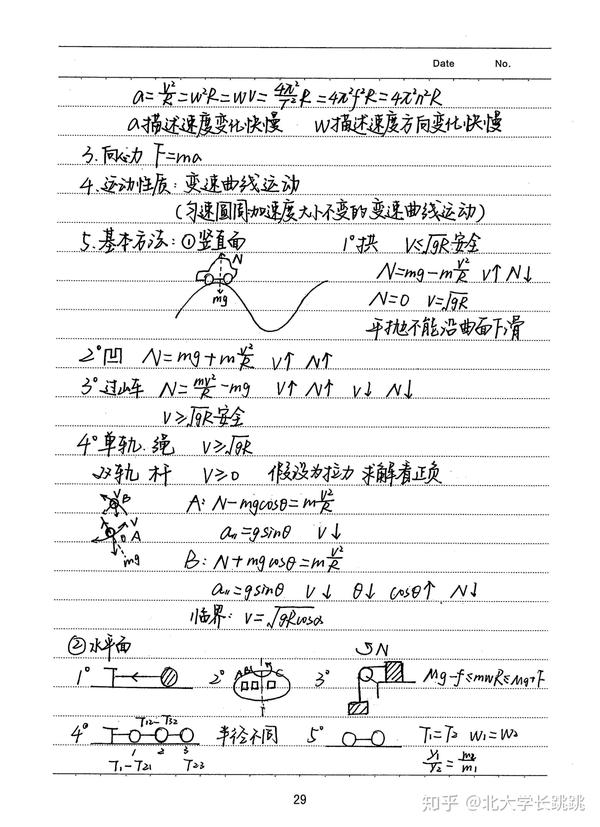 Date No.
a=v²/R=w²R=wv=4π²/T²R=4π²f²R=4π²n²R
a描述速度变化快慢 w描述速度方向变化快慢
3.向心力 F=ma
4.运动性质:变速曲线运动
(匀速圆周加速度大小不变的变速曲线运动)
5.基本方法:①竖直面 1°拱 V≤√gR安全
N
mg
N=mg-mv²/R V↑N↓
N=0 V=√gR
平抛不能沿曲面下滑
2°凹 N=mg+mv²/R V↑ N↑
3°过山车 N=mv²/R-mg V↑ N↑ V↓ N↓
V≥√gR安全
4°单轨.绳 V≥√gR
双轨 杆 V≥0 假设为拉力 求解看正负
V B
V A
θ
mg
A: N-mgcosθ=mv²/R
a₁₁=gsinθ V↓
B: N+mgcosθ=mv²/R
a₁₁=gsinθ V↓ θ↓ cosθ↑ N↓
临界: V=√gRcosα
②水平面
1° 2° A B C 3° N Mg-f≤mwR≤Mg+F
4° T12-T32 半径不同 5° T₁=T₂ W₁=W₂
1 2 3
T₁-T21 T23 r₁/r₂=m₂/m₁
29
知乎 @北大学长跳跳